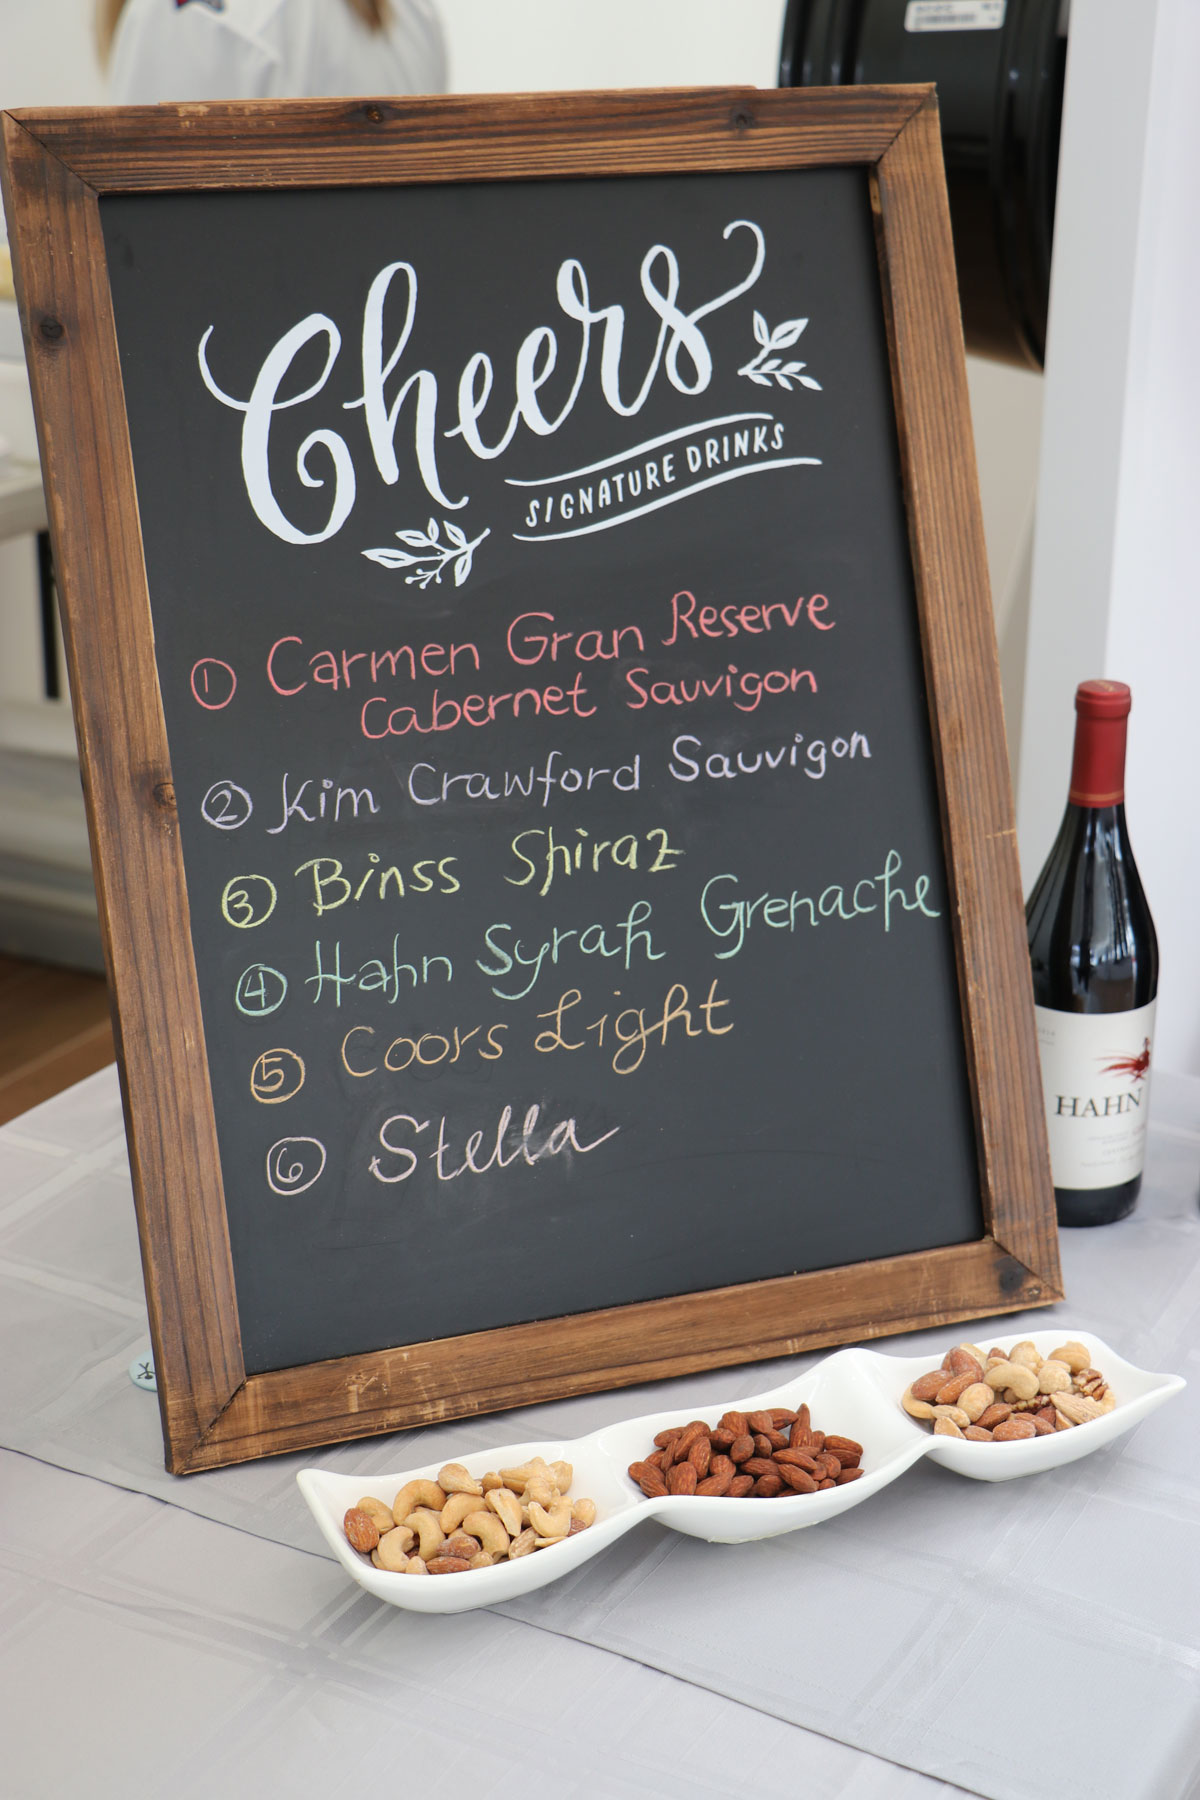 Cheers
SIGNATURE DRINKS
① Carmen Gran Reserve
Cabernet Sauvigon
② Kim Crawford Sauvigon
③ Binss Shiraz
④ Hahn Syrah Grenache
⑤ Coors Light
⑥ Stella
HAHN